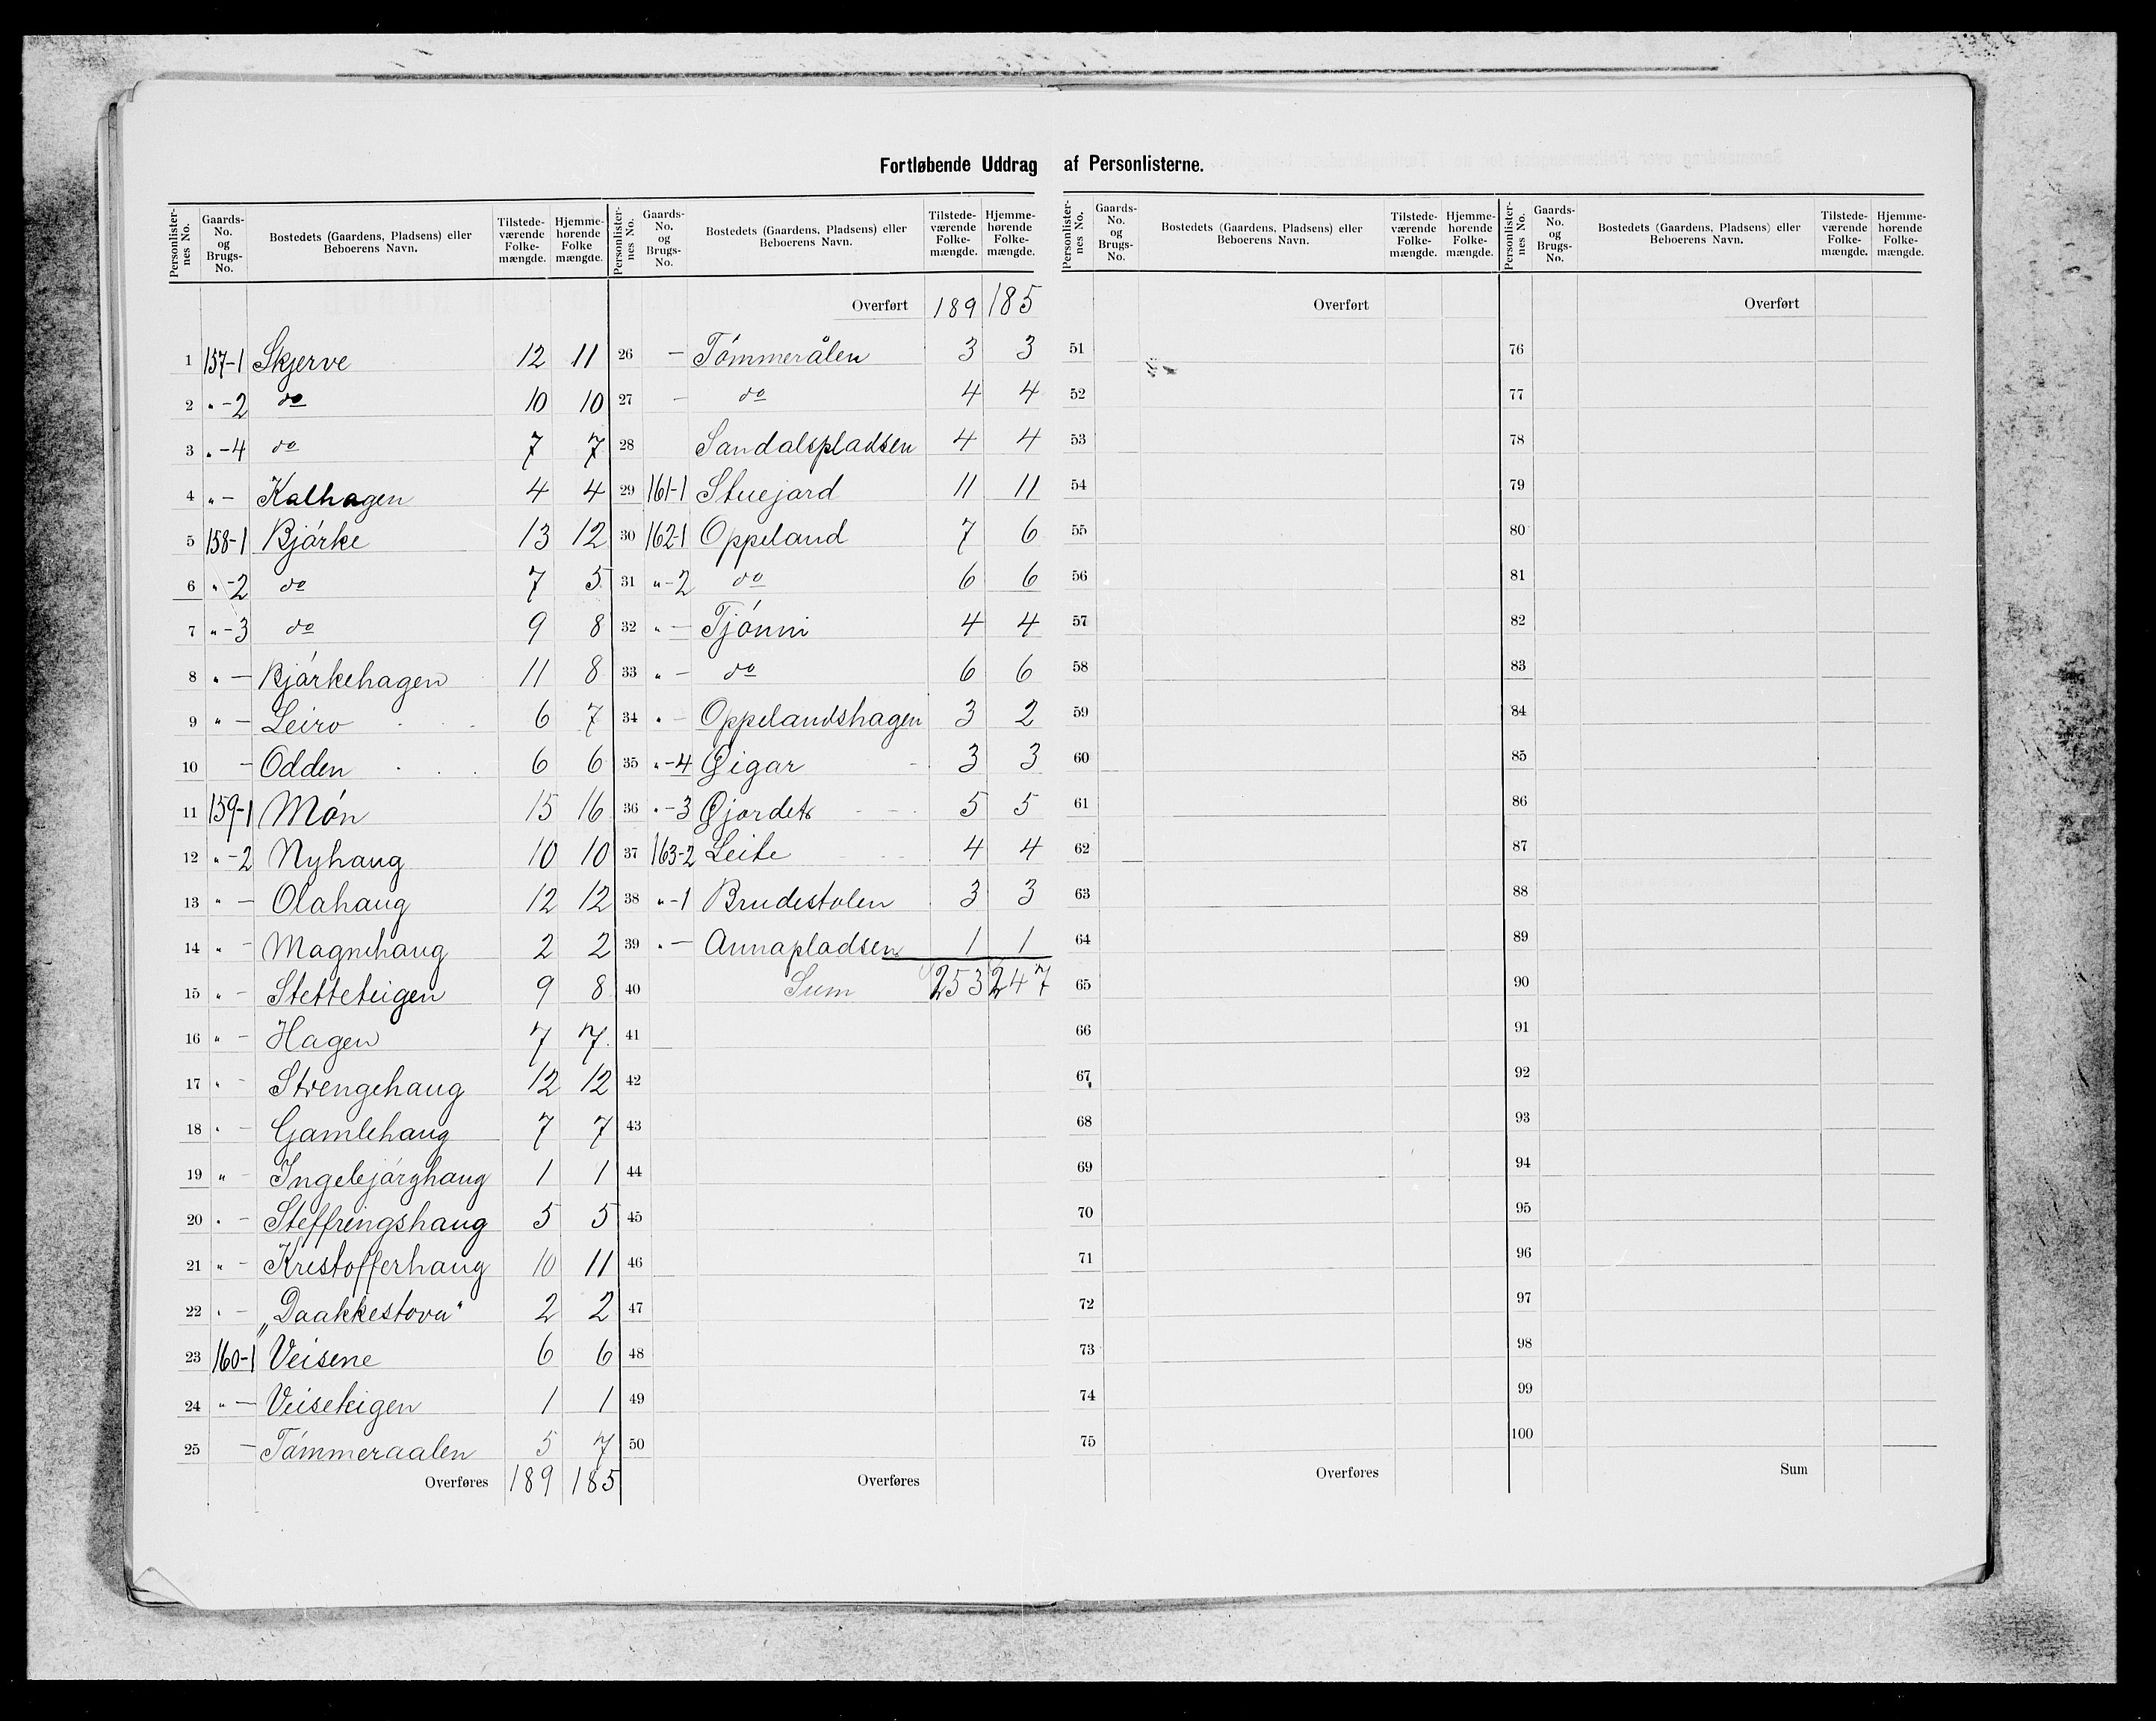 Fortløbende Uddrag af Personlisterne.
Personlister-nes No. Gaards-No. og Brugs-No. Bostedets (Gaardens, Pladsens) eller Beboerens Navn. Tilstede-værende Folke-mængde. Hjemme-hørende Folke mængde.
1 157-1 Skjerve 12 11
2 " -2 do 10 10
3 " -4 do 7 7
4 " - Kalhagen 4 4
5 158-1 Bjørke 13 12
6 " -2 do 7 5
7 " -3 do 9 8
8 " - Bjørkehagen 11 8
9 " - Leiro 6 7
10 - Odden 6 6
11 159-1 Møn 15 16
12 " -2 Nyhaug 10 10
13 " - Olahaug 12 12
14 " - Magnehaug 2 2
15 " - Stetteteigen 9 8
16 " - Hagen 7 7
17 " - Strengehaug 12 12
18 " - Gamlehaug 7 7
19 " - Ingebjørghaug 1 1
20 " - Steffringshaug 5 5
21 " - Kristofferhaug 10 11
22 " - „Daakkestova“ 2 2
23 160-1 Veisene 6 6
24 " - Veiseteigen 1 1
25 - Tømmeraalen 5 7
Overføres 189 185
Personlister-nes No. Gaards-No. og Brugs-No. Bostedets (Gaardens, Pladsens) eller Beboerens Navn. Tilstede-værende Folke-mængde. Hjemme-hørende Folke-mængde.
Overført 189 185
26 - Tømmerålen 3 3
27 - do 4 4
28 Sandalspladsen 4 4
29 161-1 Stuejord 11 11
30 162-1 Oppeland 7 6
31 " -2 do 6 6
32 " - Tjønni 4 4
33 " - do 6 6
34 " - Oppelandshagen 3 2
35 " -4 Gigar 3 3
36 " -3 Gjordet 5 5
37 163-2 Leite 4 4
38 " -1 Brudestolen 3 3
39 " - Annapladsen 1 1
40 Sum 253 247
41
42
43
44
45
46
47
48
49
50
Overføres
Personlister-nes No. Gaards-No. og Brugs-No. Bostedets (Gaardens, Pladsens) eller Beboerens Navn. Tilstede-værende Folke-mængde. Hjemme-hørende Folke-mængde.
Overført
51
52
53
54
55
56
57
58
59
60
61
62
63
64
65
66
67
68
69
70
71
72
73
74
75
Overføres
Personlister-nes No. Gaards-No. og Brugs-No. Bostedets (Gaardens, Pladsens) eller Beboerens Navn. Tilstede-værende Folke-mængde. Hjemme-hørende Folke-mængde.
Overført
76
77
78
79
80
81
82
83
84
85
86
87
88
89
90
91
92
93
94
95
96
97
98
99
100
Sum